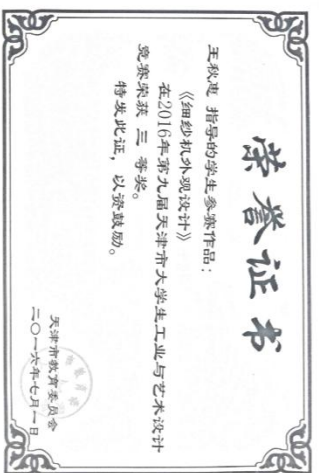 荣誉证书
王秋惠 指导的学生参赛作品：
《细纱机外观设计》
在2016年第九届天津市大学生工业与艺术设计
竞赛荣获 三 等奖。
特发此证，以资鼓励。
天津市教育委员会
二〇一六年七月一日